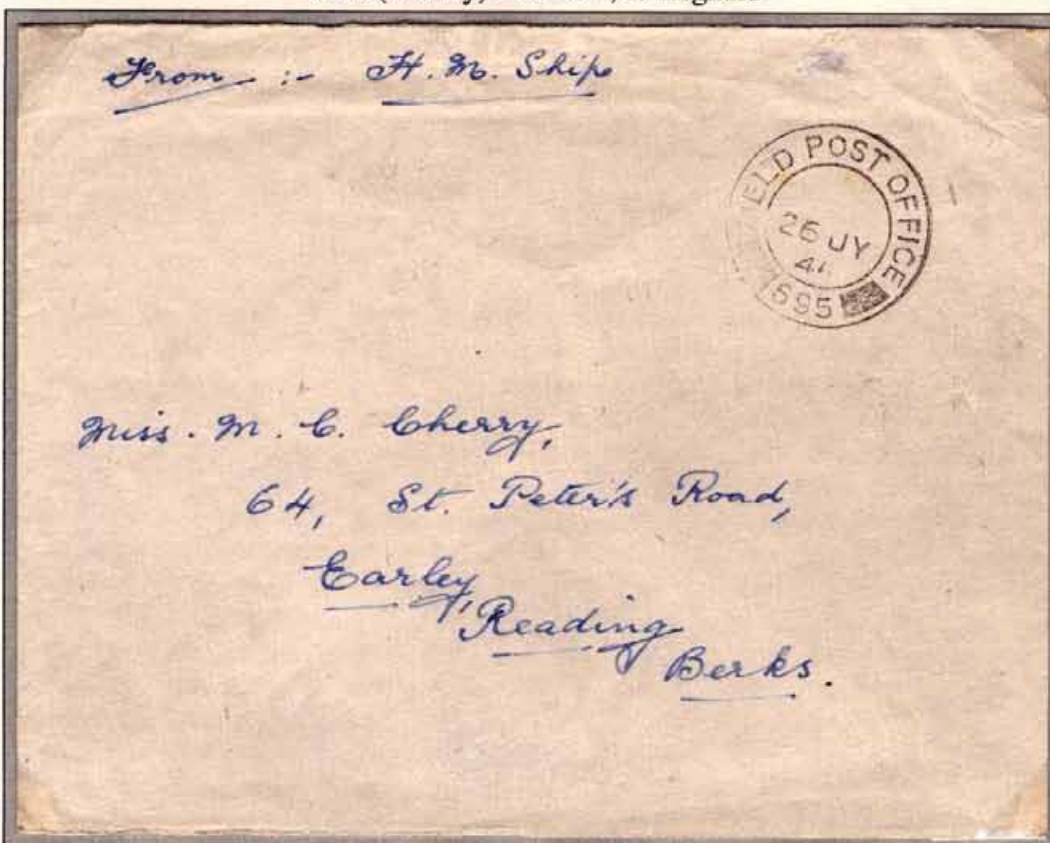 From :- H. M. Ship
FIELD POST OFFICE
26 JY
44
695
Miss. M. C. Cherry,
64, St. Peter's Road,
Earley,
Reading
Berks.